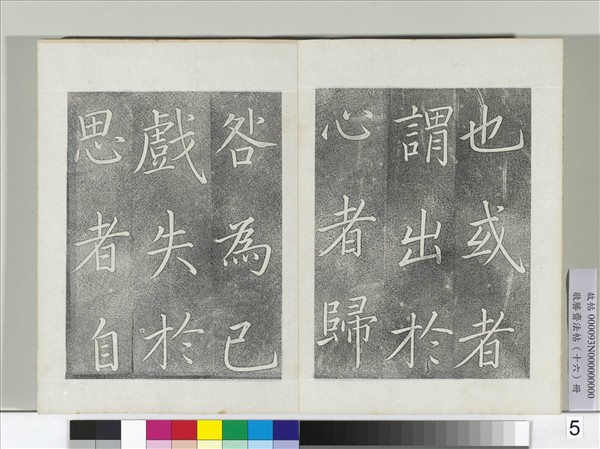 也或者
謂出於
心者歸
咎為己
戲失於
思者自
故帖 000093N000000000
敬勝齋法帖(十六)冊
5